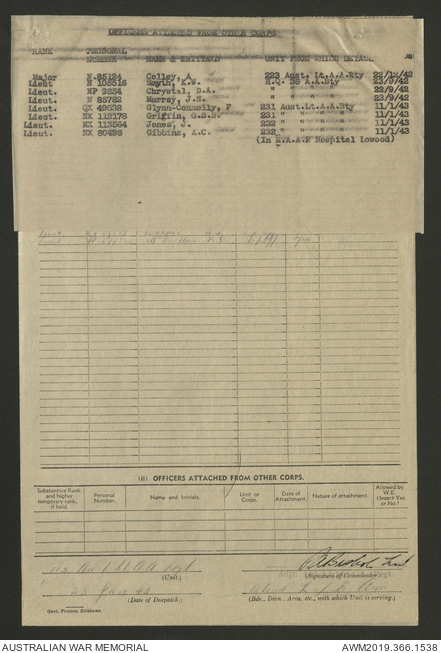 OFFICERS ATTACHED FROM OTHER CORPS
RANK PERSONAL NUMBER NAME & INITIALS UNIT FROM WHICH DETACH
Major N 85124 Colley, A. 223 Aust. Lt.A.A.Bty 22/12/42
Lieut N 108516 Smyth, K.W. H.Q. 38 A.A.Bty 23/9/42
Lieut. NP 9254 Chrystal, D.A. " " " " 22/9/42
Lieut. N 85782 Murray, J.N. " " " " 23/9/42
Lieut. QX 49508 Glynn-Connolly, F 231 Aust.Lt.A.A.Bty 11/1/43
Lieut. NX 112178 Griffin, G.S.N. 231 " " " " 11/1/43
Lieut. NX 112564 Jones, J. 232 " " " " 11/1/43
Lieut. NX 80498 Gibbins, A.C. 232 " " " " 11/1/43
(In R.A.A.F Hospital Lowood)
(ii) OFFICERS ATTACHED FROM OTHER CORPS.
Substantive Rank and higher temporary rank, if held. Personal Number. Name and Initials. Unit or Corps. Date of Attachment Nature of attachment. Allowed by W.E. (Insert Yes or No.)
(Unit.) (Signature of Commander)
Jan 43
(Date of Despatch.) (Bde., Divn., Area, etc., with which Unit is serving.)
Govt. Printer, Brisbane.
AUSTRALIAN WAR MEMORIAL AWM2019.366.1538